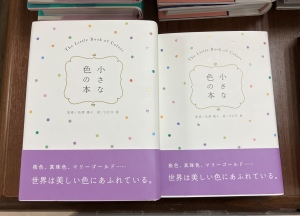 The Little Book of Colors
小さな
色の本
桜色、真珠色、マリーゴールド……
世界は美しい色にあふれている。
The Little Book of Colors
小さな
色の本
桜色、真珠色、マリーゴールド……
世界は美しい色にあふれている。